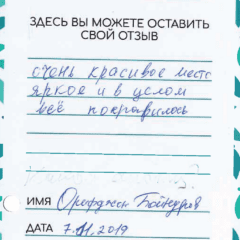 ЗДЕСЬ ВЫ МОЖЕТЕ ОСТАВИТЬ
СВОЙ ОТЗЫВ
очень красивое место
яркое и в целом
всё покравилось
ИМЯ
ДАТА 7.11.2019